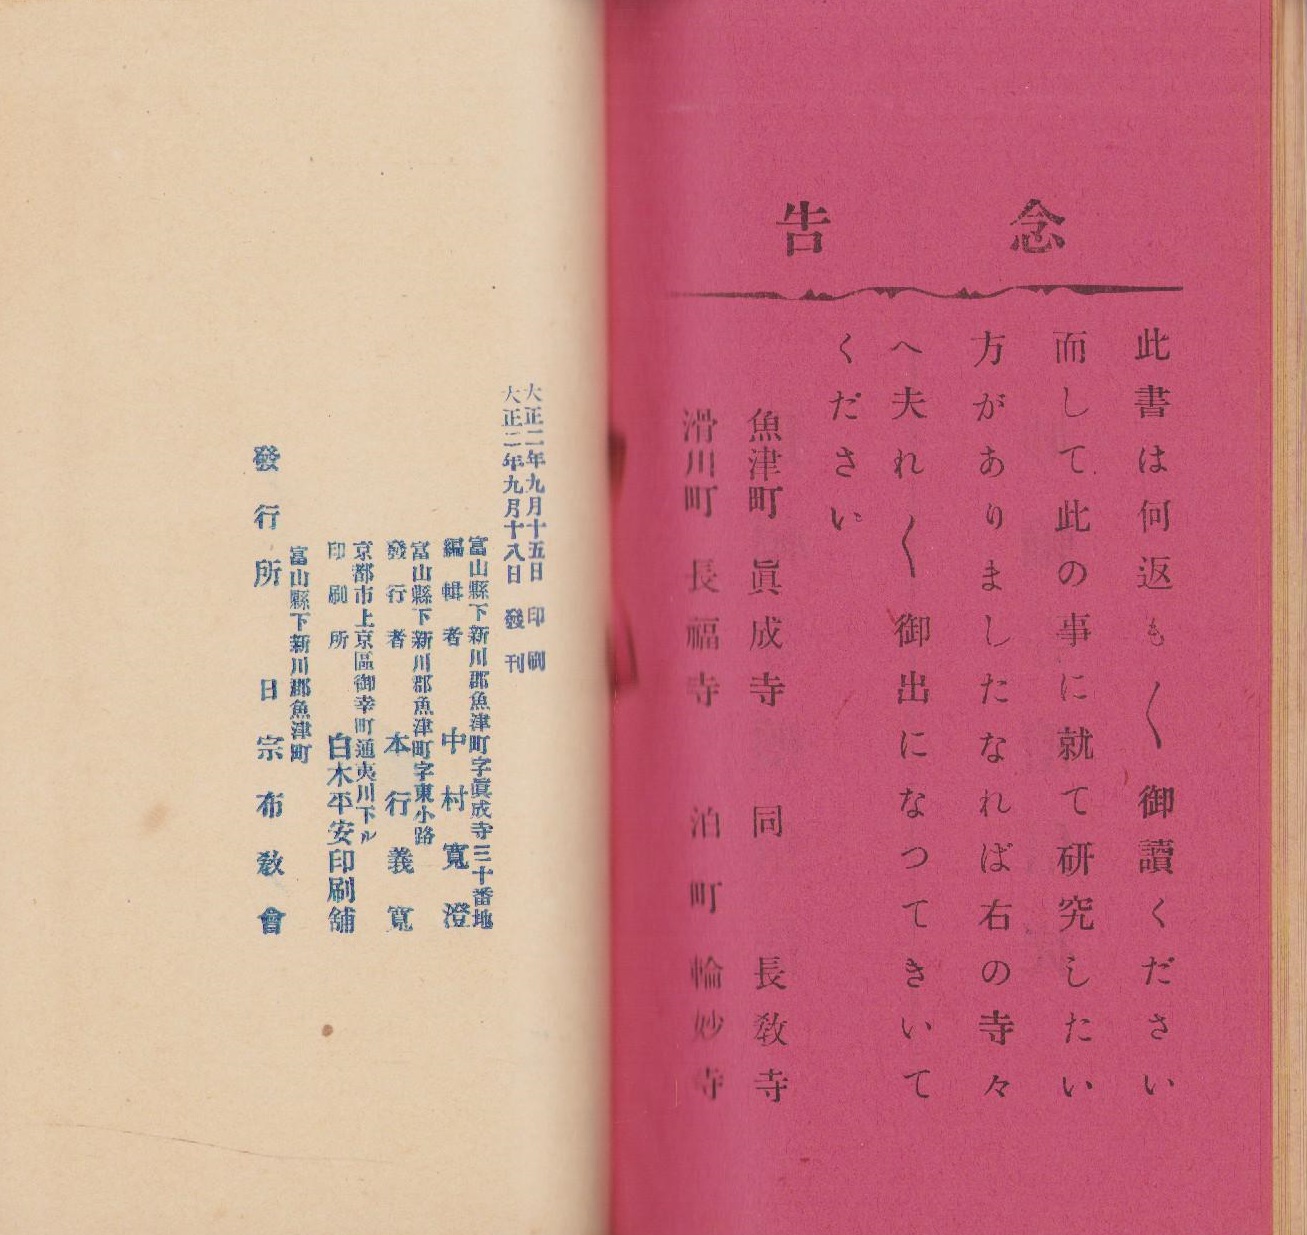 念告
此書は何返も〳〵御讀ください
而して此の事に就て研究したい
方がありましたなれば右の寺々
へ夫れ〳〵御出になつてきいて
ください
魚津町 眞成寺 同 長教寺
滑川町 長福寺 泊町 輪妙寺
大正二年九月十五日 印刷
大正二年九月十八日 發刊
富山縣下新川郡魚津町字眞成寺三十番地
編輯者 中村寬澄
富山縣下新川郡魚津町字東小路
發行者 本行義寬
京都市上京區御幸町通夷川下ル
印刷所 白木平安印刷舗
富山縣下新川郡魚津町
發行所 日宗布教會